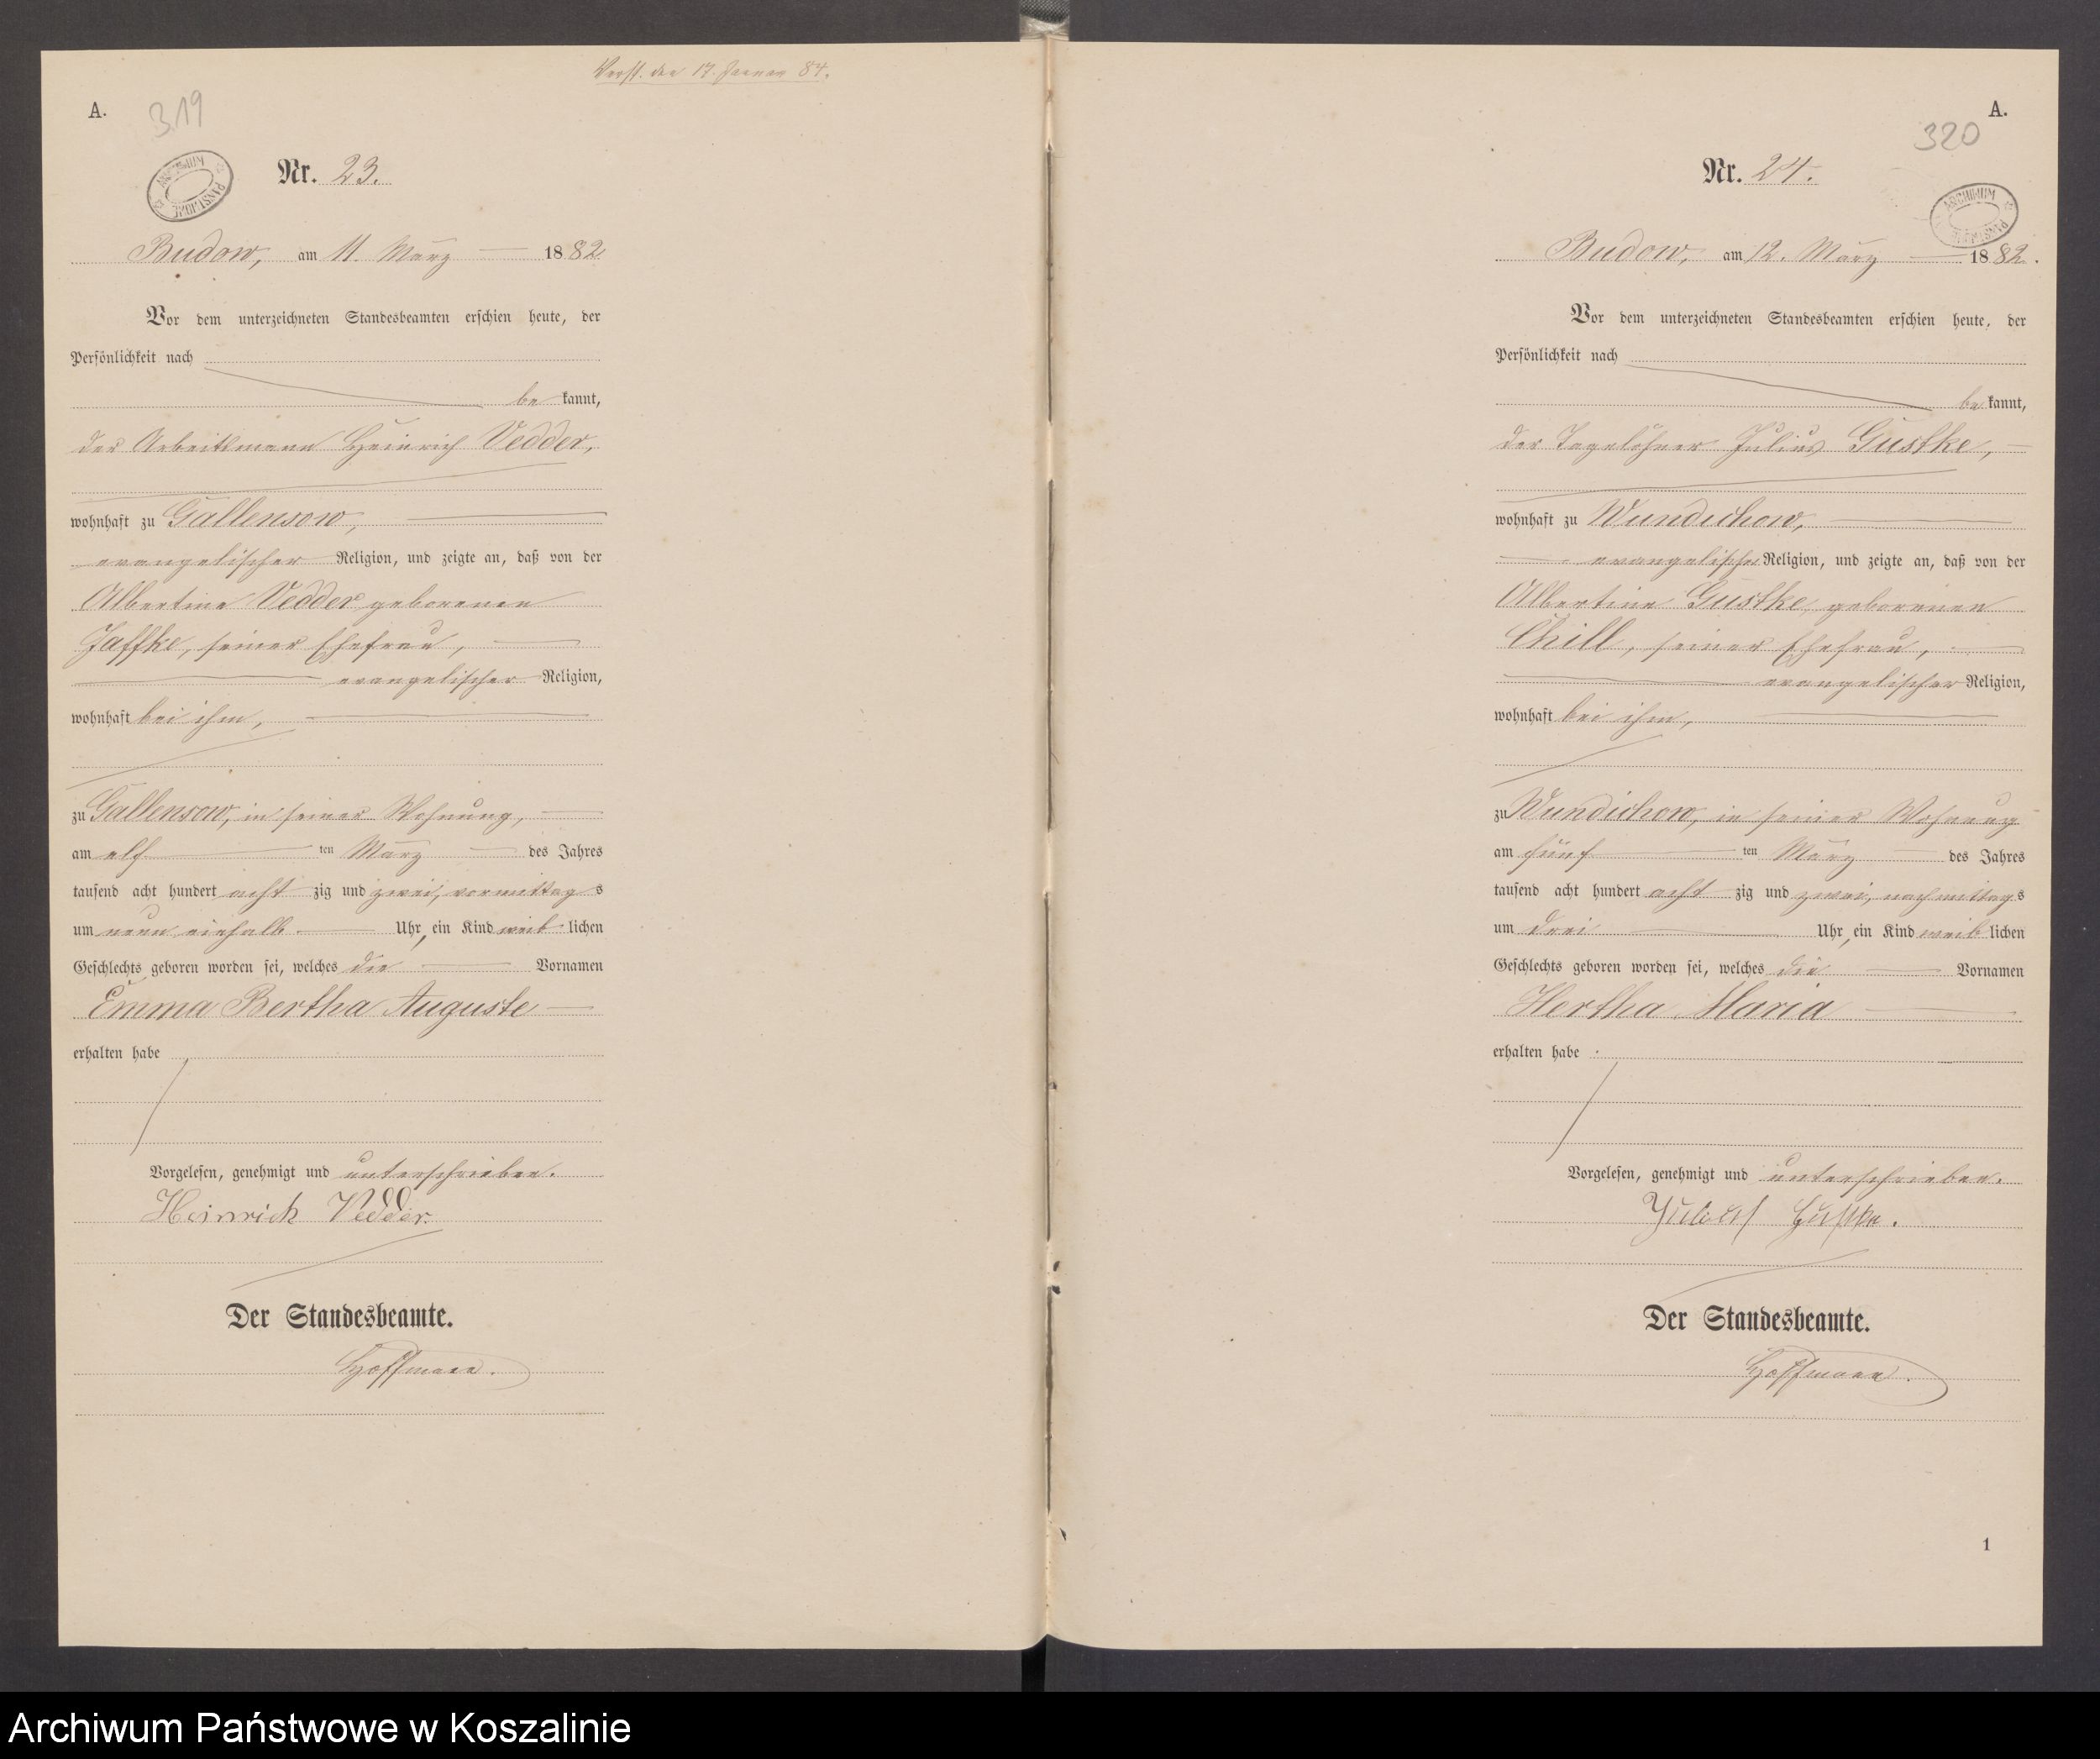 Verst. den 17. Januar 84.
A.
319
ARCHIWUM PAŃSTWOWE
Nr. 23.
Budow, am 11. März 1882.
Vor dem unterzeichneten Standesbeamten erschien heute, der
Persönlichkeit nach
be kannt,
der Arbeitsmann Heinrich Vedder,
wohnhaft zu Gallensow,
evangelischer Religion, und zeigte an, daß von der
Albertine Vedder geborenen
Jaffke, seiner Ehefrau,
evangelischer Religion,
wohnhaft bei ihm,
zu Gallensow, in seiner Wohnung,
am elf ten März des Jahres
tausend acht hundert acht zig und zwei, vormittag s
um neun einhalb Uhr, ein Kind weib lichen
Geschlechts geboren worden sei, welches die Vornamen
Emma Bertha Auguste
erhalten habe
Vorgelesen, genehmigt und unterschrieben.
Heinrich Vedder.
Der Standesbeamte.
Hoffmann.
A.
320
ARCHIWUM PAŃSTWOWE
Nr. 24.
Budow, am 12. März 1882.
Vor dem unterzeichneten Standesbeamten erschien heute, der
Persönlichkeit nach
be kannt,
der Tagelöhner Julius Gustke,
wohnhaft zu Wundichow,
evangelischer Religion, und zeigte an, daß von der
Albertine Gustke, geborenen
Chill, seiner Ehefrau,
evangelischer Religion,
wohnhaft bei ihm,
zu Wundichow, in seiner Wohnung
am fünf ten März des Jahres
tausend acht hundert acht zig und zwei, nachmittag s
um drei Uhr, ein Kind weib lichen
Geschlechts geboren worden sei, welches die Vornamen
Hertha Maria
erhalten habe
Vorgelesen, genehmigt und unterschrieben.
Julius Gustke.
Der Standesbeamte.
Hoffmann.
1
Archiwum Państwowe w Koszalinie